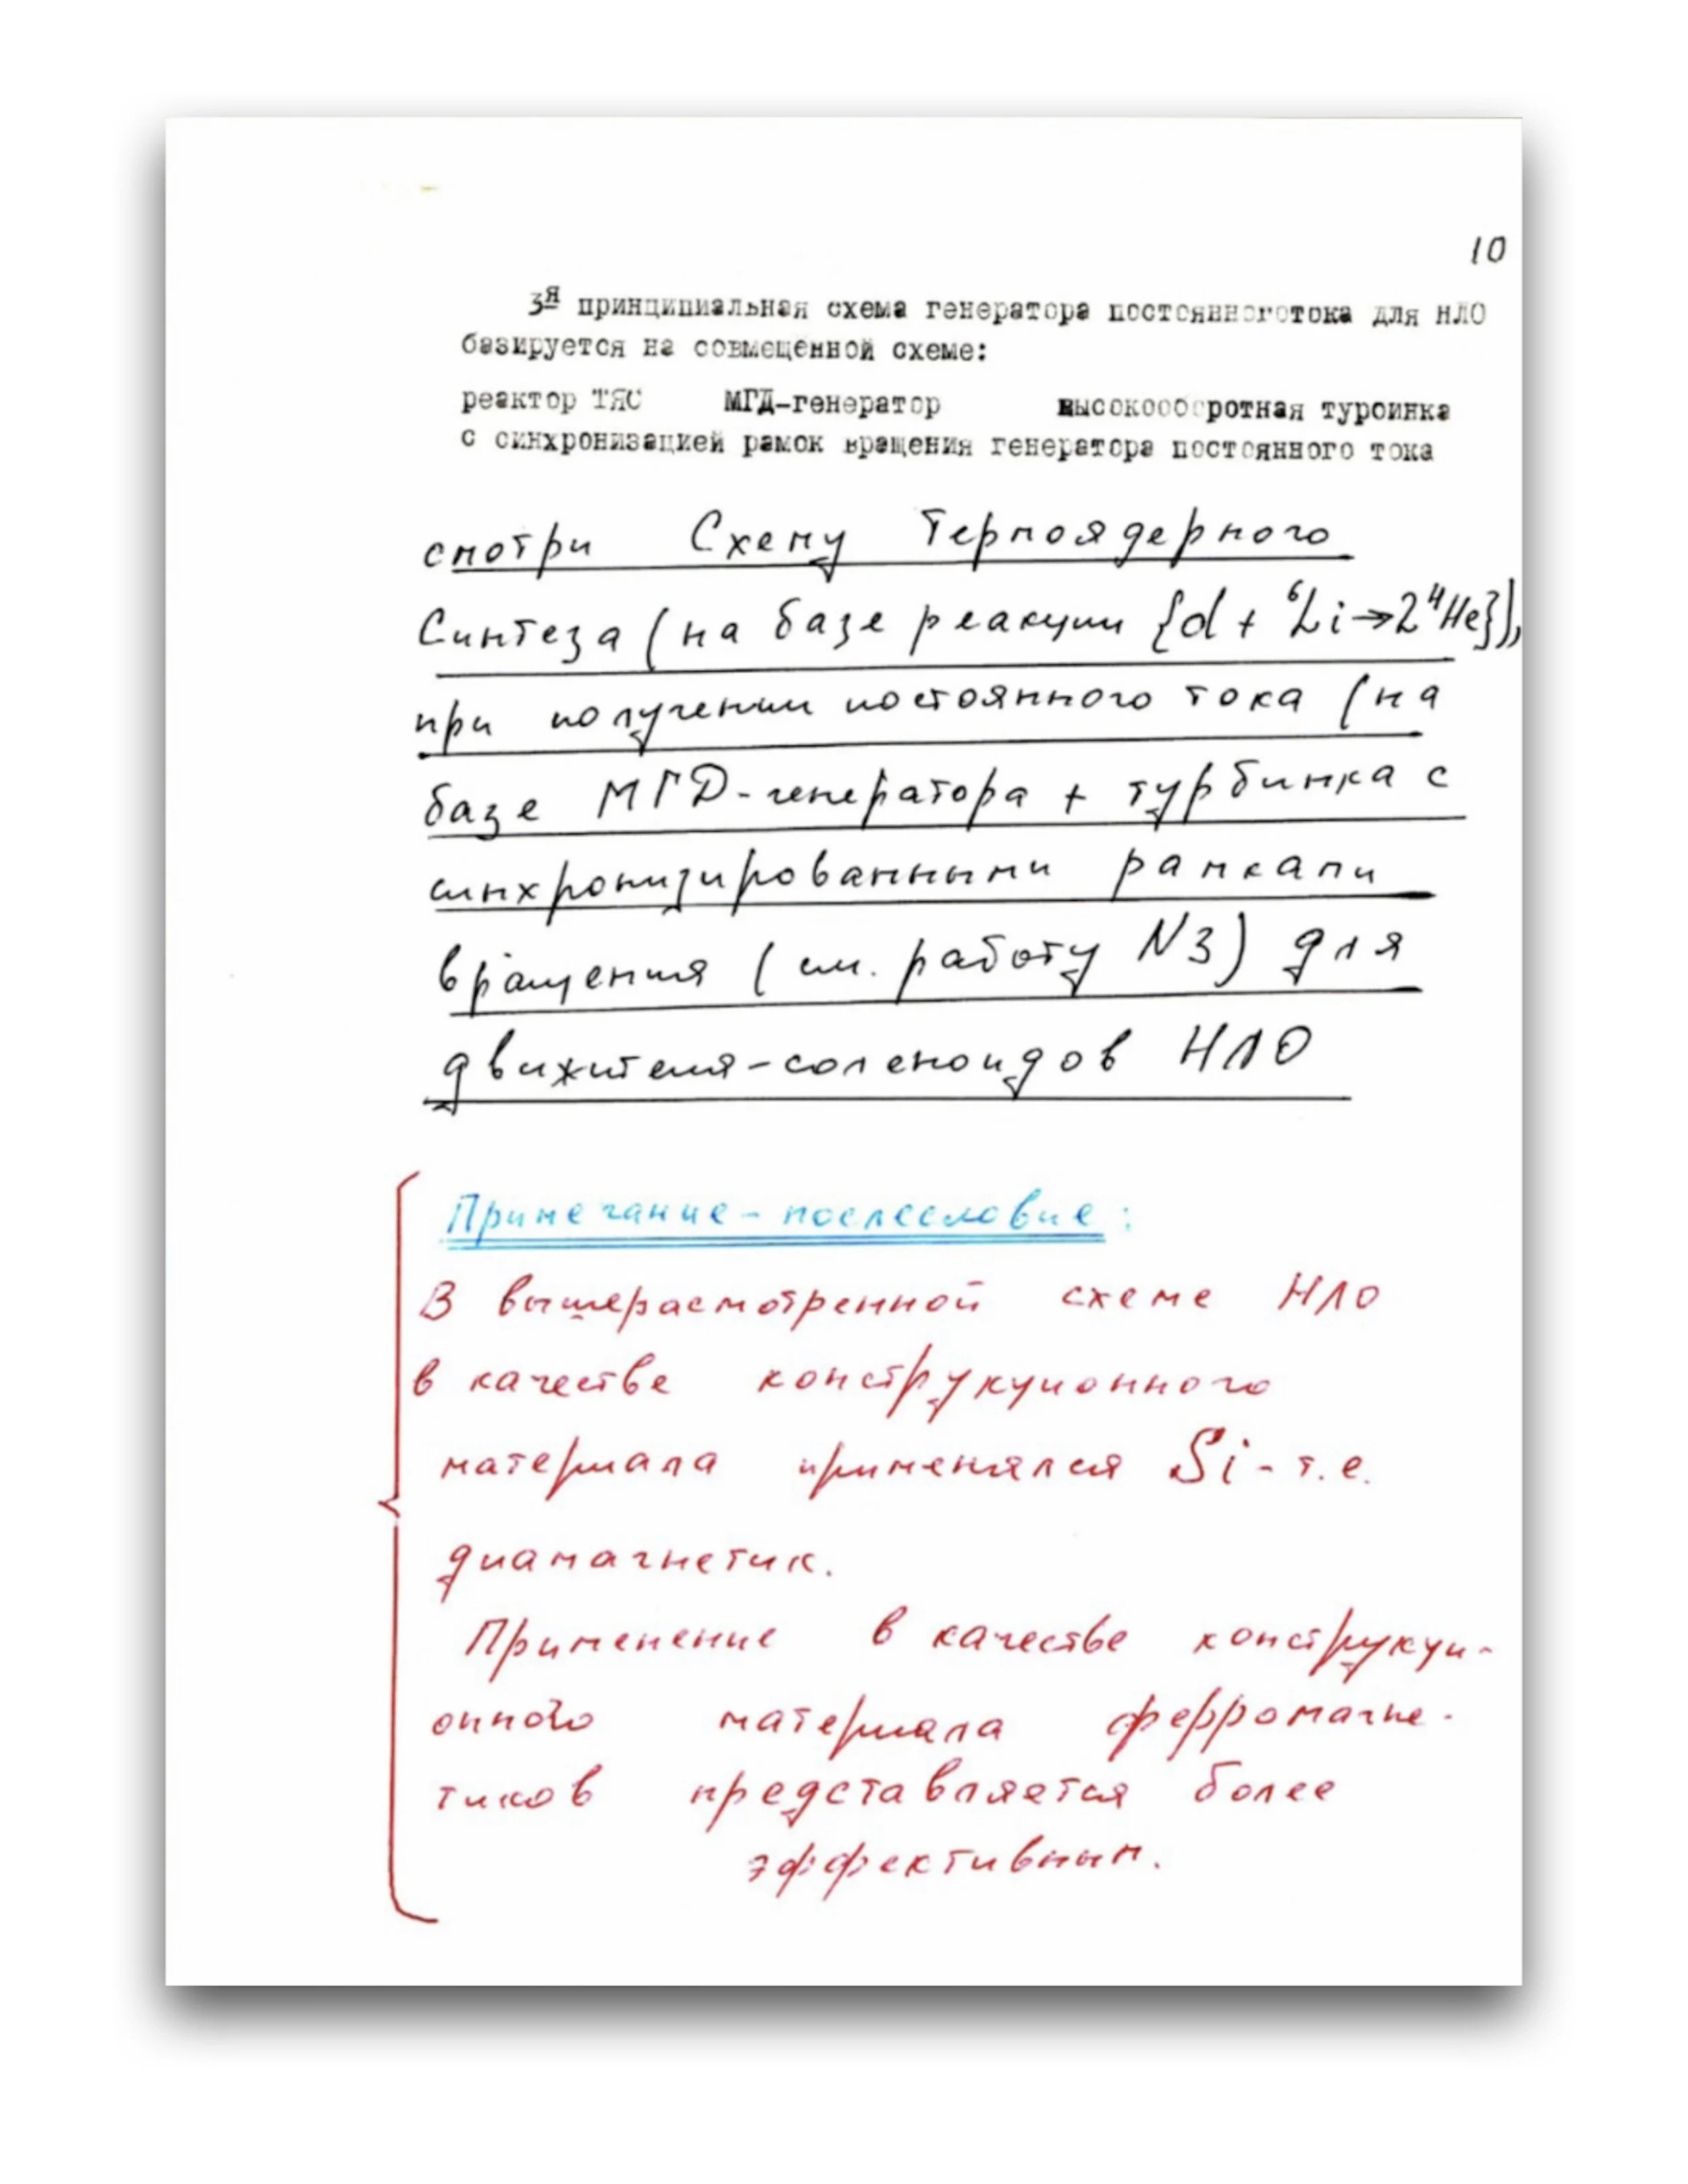 10
3я принципиальная схема генератора постоянноготока для НЛО
базируется на совмещенной схеме:
реактор ТЯС МГД-генератор высокооборотная туроинка
с синхронизацией рамок вращения генератора постоянного тока
смотри Схему Термоядерного
Синтеза (на базе реакции {d + ⁶Li→2⁴He}),
при получении постоянного тока (на
базе МГД-генератора + турбинка с
синхронизированными рамками
вращения (см. работу N3) для
движителя-соленоидов НЛО
Примечание-послесловие:
В вышерасмотренной схеме НЛО
в качестве конструкционного
материала применялся Si - т.е.
диамагнетик.
Применение в качестве конструкци-
онного материала ферромагне-
тиков представляется более
эффективным.